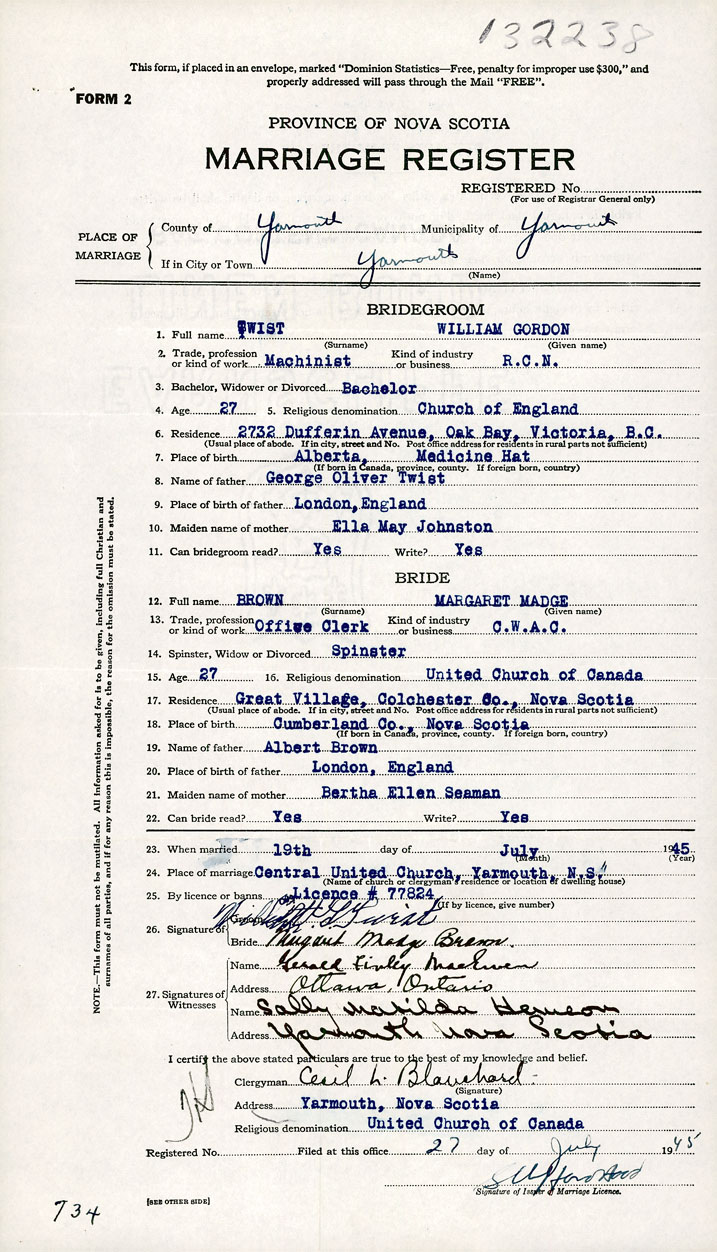 132238
This form, if placed in an envelope, marked “Dominion Statistics—Free, penalty for improper use $300,” and
properly addressed will pass through the Mail “FREE”.
FORM 2
PROVINCE OF NOVA SCOTIA
MARRIAGE REGISTER
REGISTERED No.
(For use of Registrar General only)
PLACE OF MARRIAGE
County of Yarmouth Municipality of Yarmouth
If in City or Town Yarmouth
(Name)
BRIDEGROOM
1. Full name TWIST WILLIAM GORDON
(Surname) (Given name)
2. Trade, profession or kind of work Machinist Kind of industry or business R.C.N.
3. Bachelor, Widower or Divorced Bachelor
4. Age 27 5. Religious denomination Church of England
6. Residence 2732 Dufferin Avenue, Oak Bay, Victoria, B.C.
(Usual place of abode. If in city, street and No. Post office address for residents in rural parts not sufficient)
7. Place of birth Alberta, Medicine Hat
(If born in Canada, province, county. If foreign born, country)
8. Name of father George Oliver Twist
9. Place of birth of father London, England
10. Maiden name of mother Ella May Johnston
11. Can bridegroom read? Yes Write? Yes
BRIDE
12. Full name BROWN MARGARET MADGE
(Surname) (Given name)
13. Trade, profession or kind of work Office Clerk Kind of industry or business C.W.A.C.
14. Spinster, Widow or Divorced Spinster
15. Age 27 16. Religious denomination United Church of Canada
17. Residence Great Village, Colchester Co., Nova Scotia
(Usual place of abode. If in city, street and No. Post office address for residents in rural parts not sufficient)
18. Place of birth Cumberland Co., Nova Scotia
(If born in Canada, province, county. If foreign born, country)
19. Name of father Albert Brown
20. Place of birth of father London, England
21. Maiden name of mother Bertha Ellen Seaman
22. Can bride read? Yes Write? Yes
23. When married 19th day of July 1945
(Month) (Year)
24. Place of marriage Central United Church, Yarmouth, N.S.
(Name of church or clergyman's residence or location of dwelling house)
25. By licence or banns Licence # 77824
(If by licence, give number)
26. Signature of
Groom Twist
Bride Margaret Madge Brown.
27. Signatures of Witnesses
Name Gerald Finley MacEwen
Address Ottawa, Ontario
Name Sally Matilda
Address Yarmouth Nova Scotia
I certify the above stated particulars are true to the best of my knowledge and belief.
Clergyman Cecil L. Blanchard
(Signature)
Address Yarmouth, Nova Scotia
Religious denomination United Church of Canada
Registered No. Filed at this office 27 day of July 1945
Signature of Issuer of Marriage Licence.
734
[SEE OTHER SIDE]
NOTE.—This form must not be mutilated. All information asked for is to be given, including full Christian and
surnames of all parties, and if for any reason this is impossible, the reason for the omission must be stated.